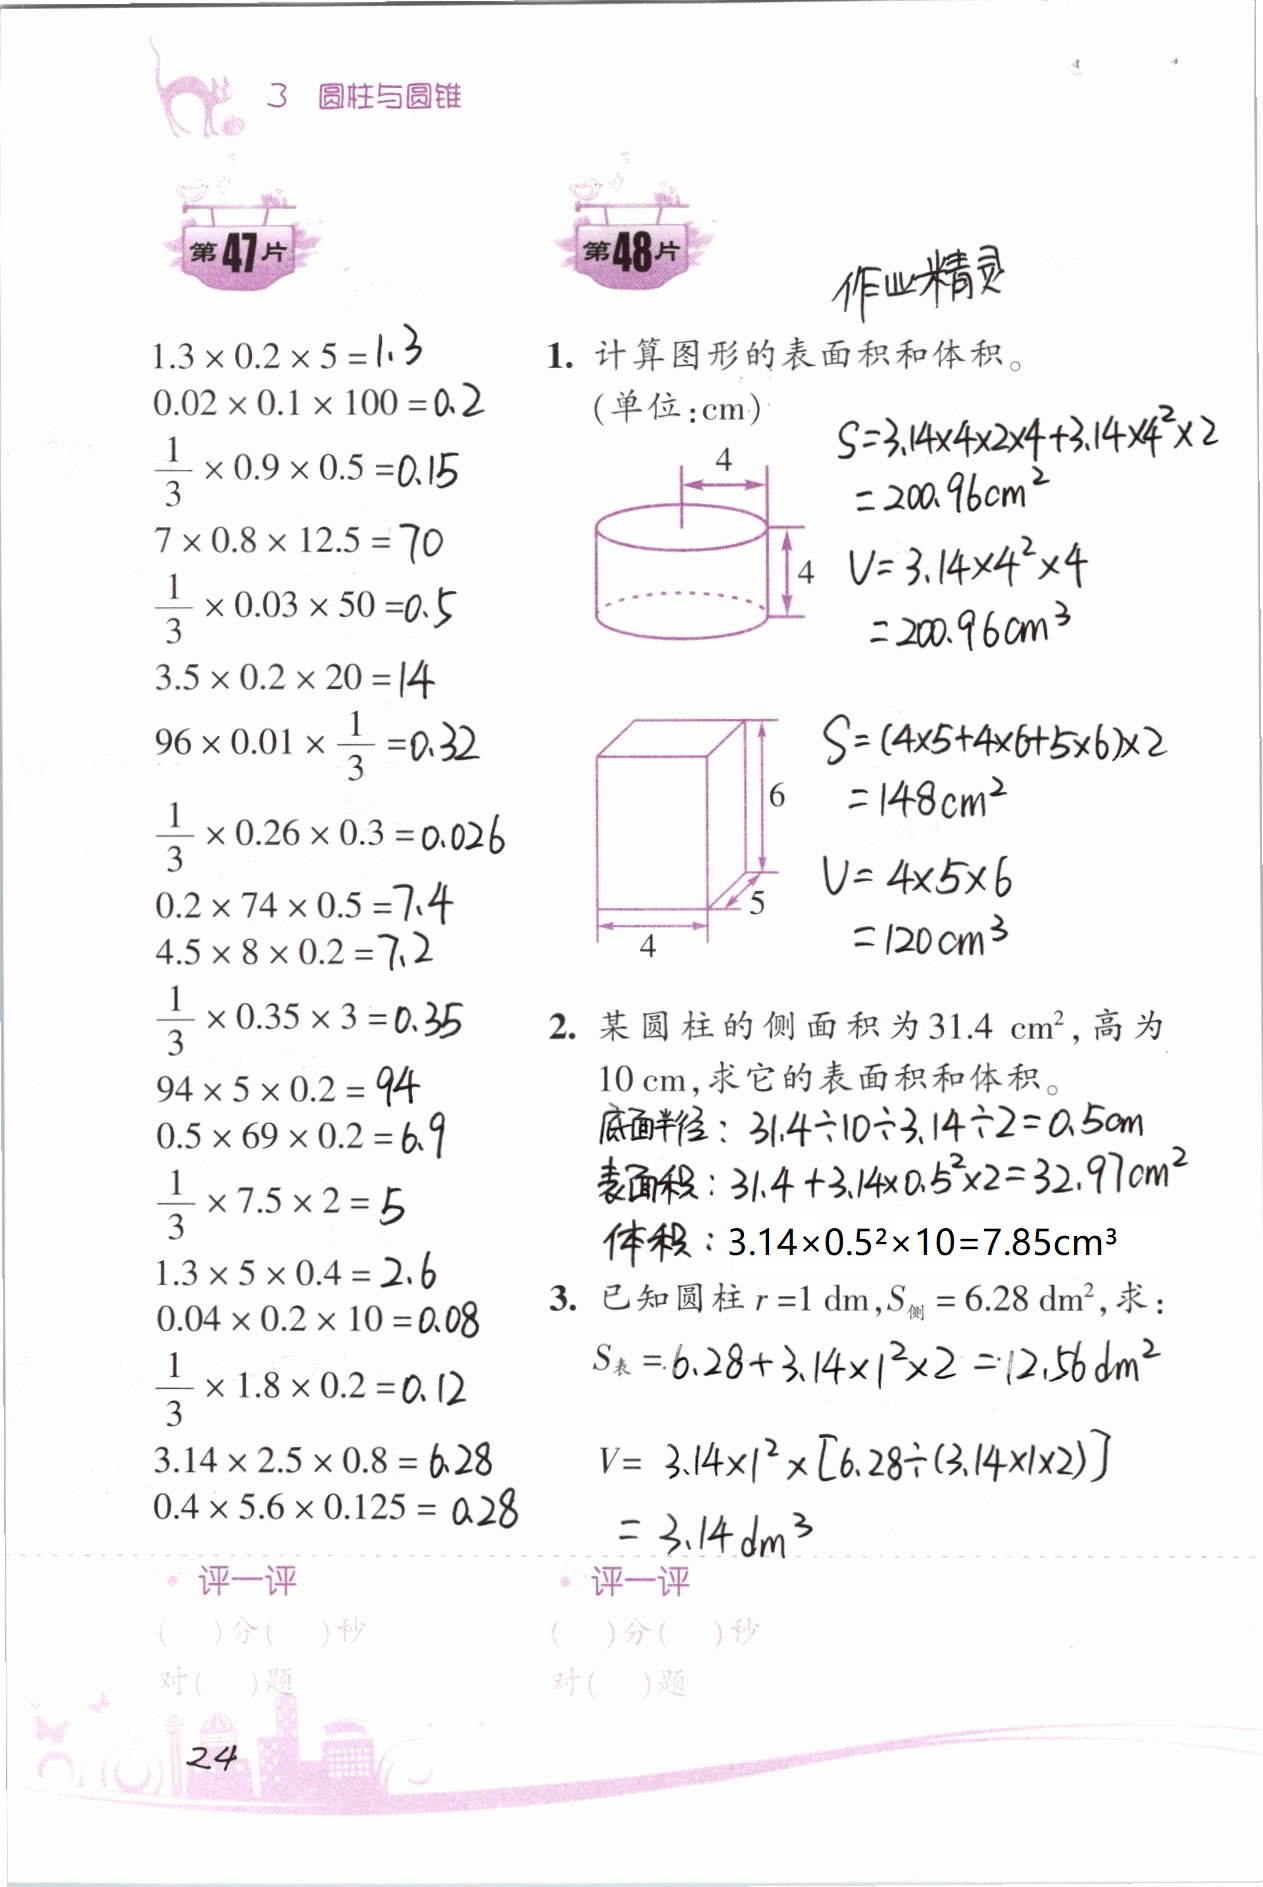 3 圆柱与圆锥
第47片
1.3 × 0.2 × 5 = 1.3
0.02 × 0.1 × 100 = 0.2
1/3 × 0.9 × 0.5 = 0.15
7 × 0.8 × 12.5 = 70
1/3 × 0.03 × 50 = 0.5
3.5 × 0.2 × 20 = 14
96 × 0.01 × 1/3 = 0.32
1/3 × 0.26 × 0.3 = 0.026
0.2 × 74 × 0.5 = 7.4
4.5 × 8 × 0.2 = 7.2
1/3 × 0.35 × 3 = 0.35
94 × 5 × 0.2 = 94
0.5 × 69 × 0.2 = 6.9
1/3 × 7.5 × 2 = 5
1.3 × 5 × 0.4 = 2.6
0.04 × 0.2 × 10 = 0.08
1/3 × 1.8 × 0.2 = 0.12
3.14 × 2.5 × 0.8 = 6.28
0.4 × 5.6 × 0.125 = 0.28
评一评
( )分( )秒
对( )题
第48片
作业精灵
1. 计算图形的表面积和体积。
(单位:cm)
4
4
S=3.14×4×2×4+3.14×4²×2
=200.96cm²
V=3.14×4²×4
=200.96cm³
6
5
4
S=(4×5+4×6+5×6)×2
=148cm²
V=4×5×6
=120cm³
2. 某圆柱的侧面积为31.4 cm²,高为
10 cm,求它的表面积和体积。
底面半径:31.4÷10÷3.14÷2=0.5cm
表面积:31.4+3.14×0.5²×2=32.97cm²
体积:3.14×0.5²×10=7.85cm³
3. 已知圆柱 r =1 dm,S侧 = 6.28 dm²,求:
S表 = 6.28+3.14×1²×2 =12.56dm²
V= 3.14×1²×[6.28÷(3.14×1×2)]
= 3.14dm³
评一评
( )分( )秒
对( )题
24